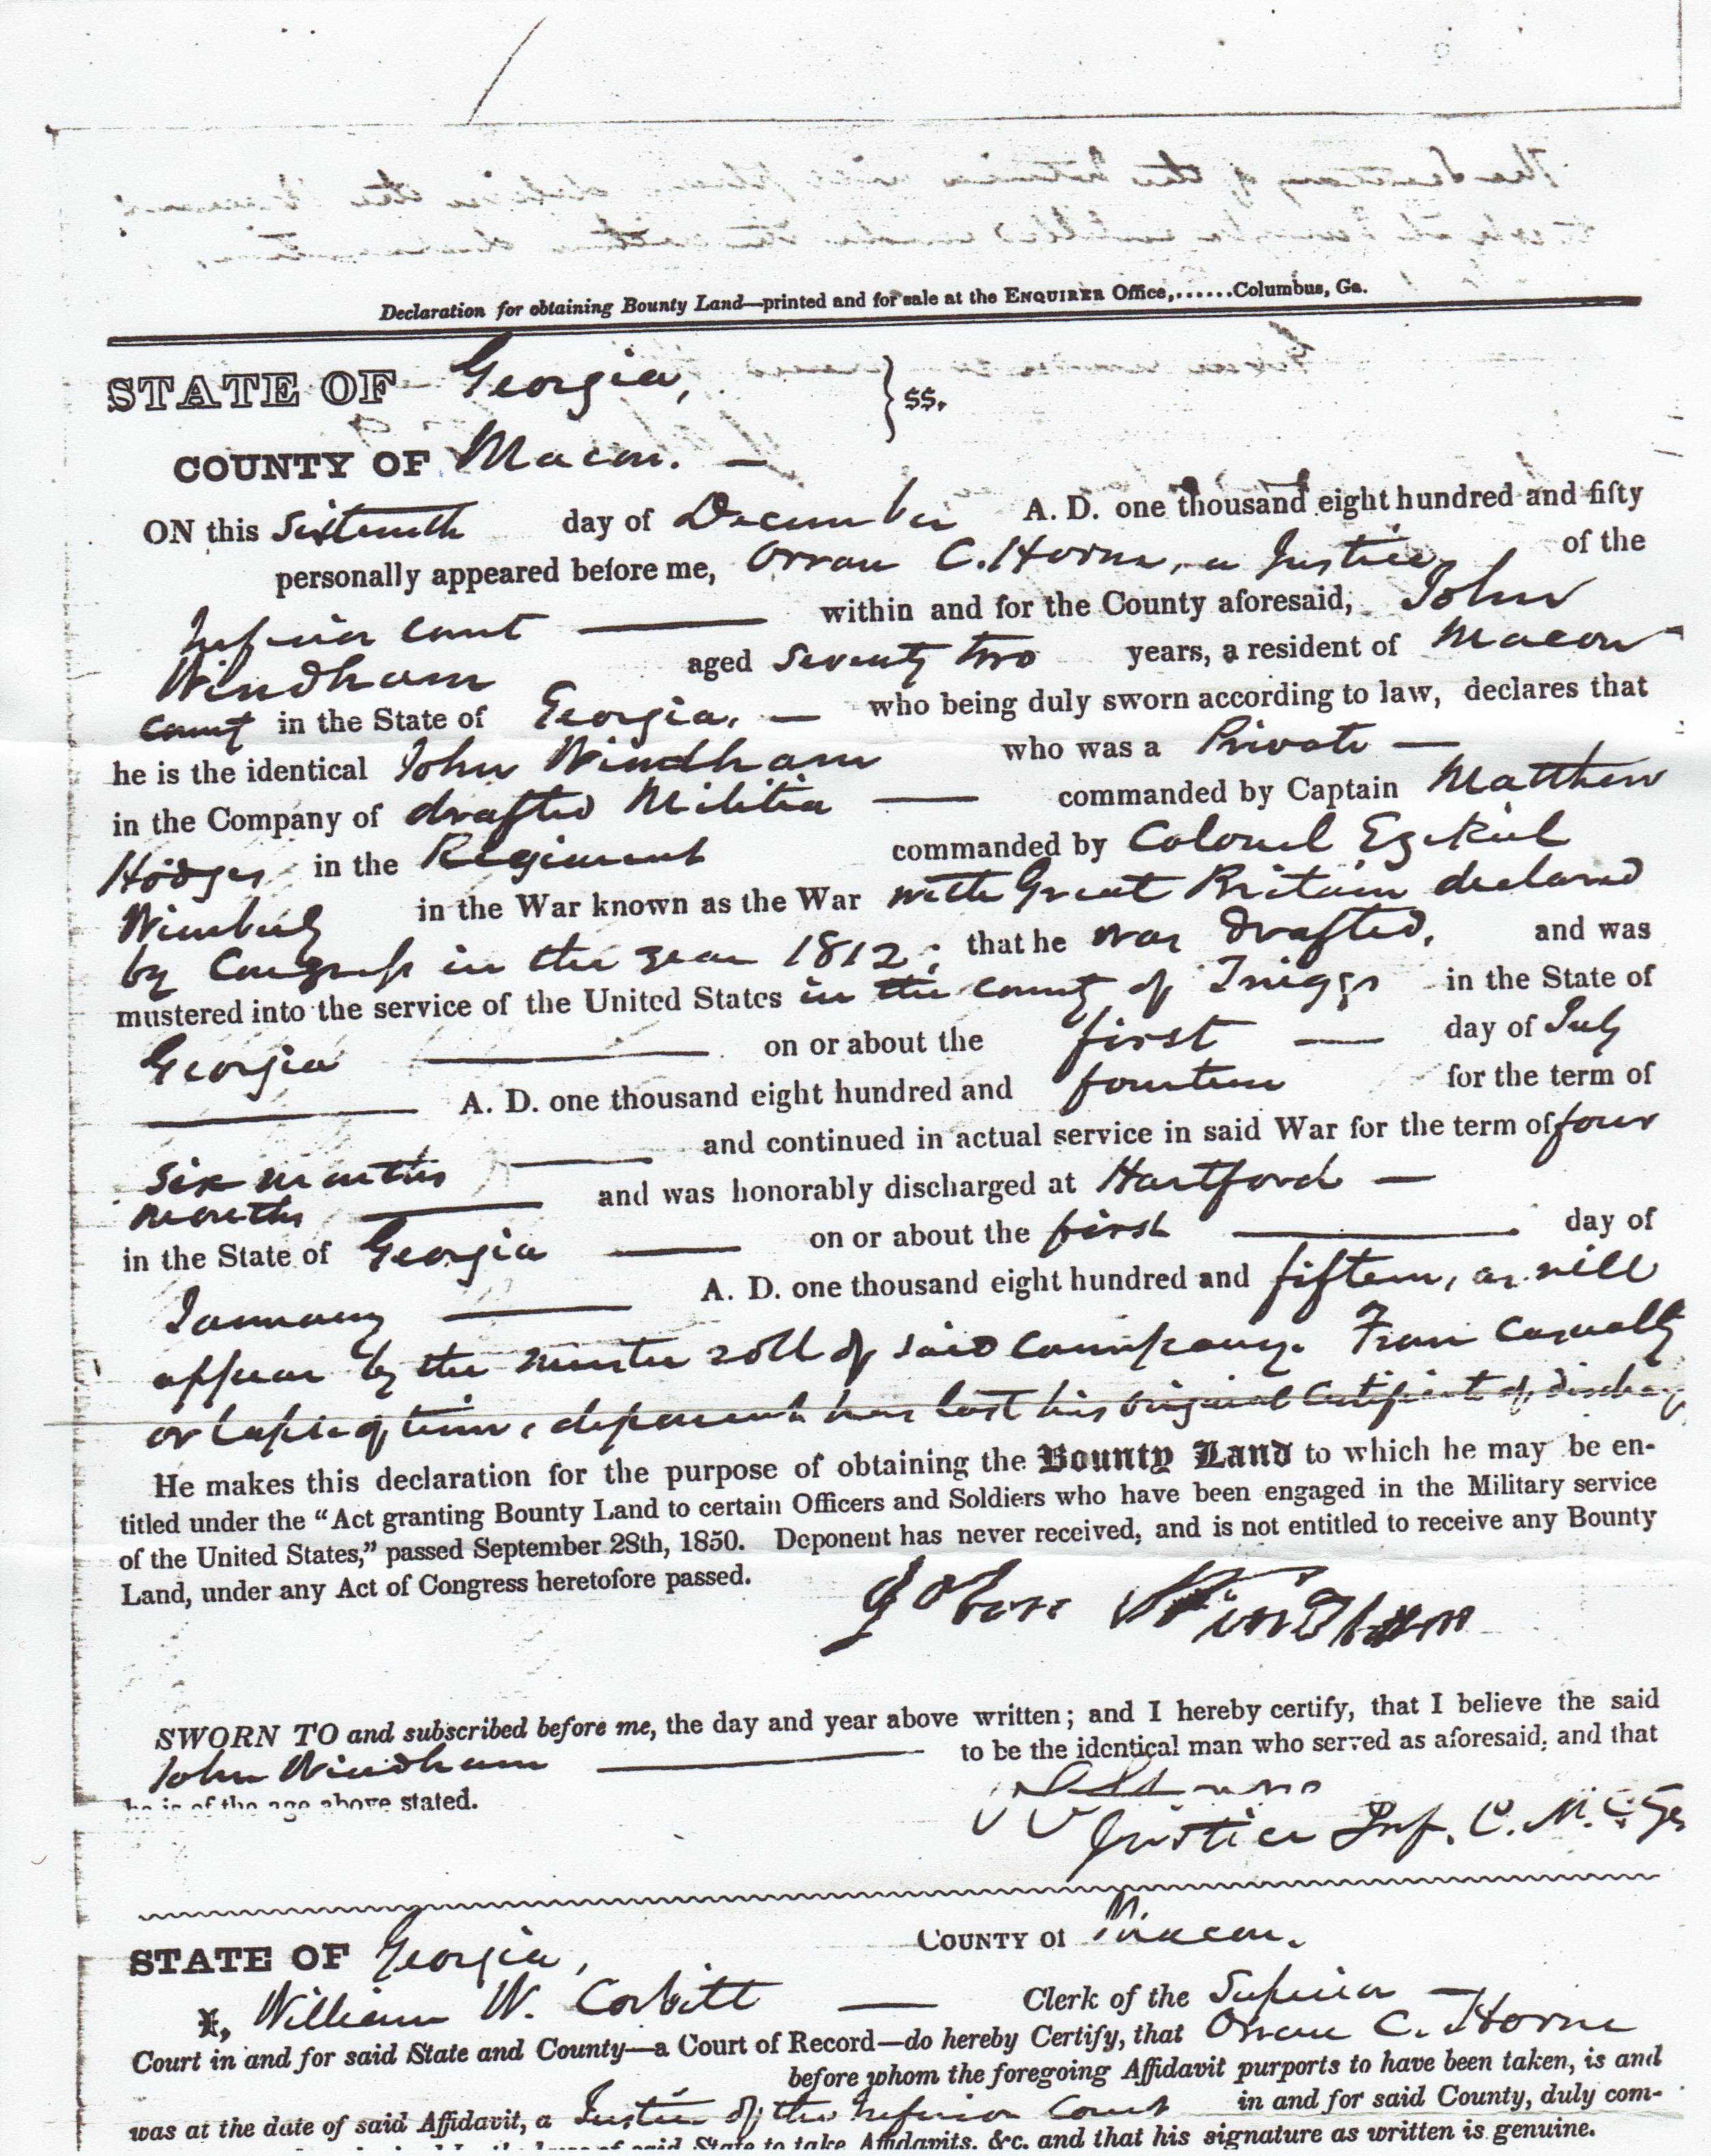 Declaration for obtaining Bounty Land—printed and for sale at the ENQUIRER Office,......Columbus, Ga.
STATE OF Georgia, } ss.
COUNTY OF Macon. —
ON this Sixteenth day of December A. D. one thousand eight hundred and fifty
personally appeared before me, Orran C. Horne, a Justice of the
Inferior Court — within and for the County aforesaid, John
Windham aged Seventy two years, a resident of Macon
County in the State of Georgia, — who being duly sworn according to law, declares that
he is the identical John Windham who was a Private —
in the Company of drafted Militia — commanded by Captain Matthew
Hodges in the Regiment commanded by Colonel Ezekiel
Wimberly in the War known as the War with Great Britain declared
by Congress in the year 1812; that he was drafted, and was
mustered into the service of the United States in the county of Twiggs in the State of
Georgia — on or about the first — day of July
— A. D. one thousand eight hundred and fourteen for the term of
Six months — and continued in actual service in said War for the term of four
months — and was honorably discharged at Hartford —
in the State of Georgia — on or about the first — day of
January — A. D. one thousand eight hundred and fifteen, as will
appear by the muster roll of said company. From Casualty
or lapse of time, deponent has lost his original Certificate of discharge
He makes this declaration for the purpose of obtaining the Bounty Land to which he may be en-
titled under the “Act granting Bounty Land to certain Officers and Soldiers who have been engaged in the Military service
of the United States,” passed September 28th, 1850. Deponent has never received, and is not entitled to receive any Bounty
Land, under any Act of Congress heretofore passed.
John Windham
SWORN TO and subscribed before me, the day and year above written; and I hereby certify, that I believe the said
John Windham — to be the identical man who served as aforesaid, and that
he is of the age above stated.
Justice Inf. C. M. C. Ga
STATE OF Georgia, COUNTY of Macon.
I, William W. Corbitt — Clerk of the Superior —
Court in and for said State and County—a Court of Record—do hereby Certify, that Orran C. Horne
before whom the foregoing Affidavit purports to have been taken, is and
was at the date of said Affidavit, a Justice of the Inferior Court in and for said County, duly com-
of said State to take Affidavits, &c. and that his signature as written is genuine.